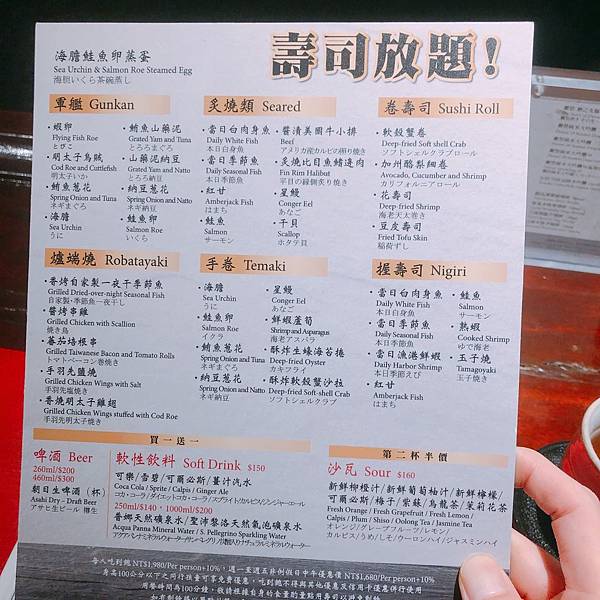 海膽鮭魚卵蒸蛋
Sea Urchin & Salmon Roe Steamed Egg
海胆いくら茶碗蒸し
壽司放題!
軍艦 Gunkan
・蝦卵
Flying Fish Roe
とびこ
・明太子烏賊
Cod Roe and Cuttlefish
明太子いか
・鮪魚蔥花
Spring Onion and Tuna
ネギまぐろ
・海膽
Sea Urchin
うに
・鮪魚山藥泥
Grated Yam and Tuna
とろろまぐろ
・山藥泥納豆
Grated Yam and Natto
とろろ納豆
・納豆蔥花
Spring Onion and Natto
ネギ納豆
・鮭魚卵
Salmon Roe
いくら
炙燒類 Seared
・當日白肉身魚
Daily White Fish
本日白身魚
・當日季節魚
Daily Seasonal Fish
本日季節魚
・紅甘
Amberjack Fish
はまち
・鮭魚
Salmon
サーモン
・醬漬美國牛小排
Beef
アメリカ産カルビの照り焼き
・炙燒比目魚鰭邊肉
Fin Rim Halibut
平目の縁側炙り焼き
・星鰻
Conger Eel
あなご
・干貝
Scallop
ホタテ貝
卷壽司 Sushi Roll
・軟殼蟹卷
Deep-fried Soft shell Crab
ソフトシェルクラブロール
・加州酪梨細卷
Avocado, Cucumber and Shrimp
カリフォルニアロール
・花壽司
Deep-fried Shrimp
海老天太巻き
・豆皮壽司
Fried Tofu Skin
稲荷すし
爐端燒 Robatayaki
・香烤自家製一夜干季節魚
Grilled Dried-over-night Seasonal Fish
自家製・季節魚一夜干し
・醬烤串雞
Grilled Chicken with Scallion
焼き鳥
・蕃茄培根串
Grilled Taiwanese Bacon and Tomato Rolls
トマトベーコン巻焼き
・手羽先鹽燒
Grilled Chicken Wings with Salt
手羽先塩焼き
・香燒明太子雞翅
Grilled Chicken Wings stuffed with Cod Roe
手羽先明太子焼き
手卷 Temaki
・海膽
Sea Urchin
うに
・鮭魚卵
Salmon Roe
イクラ
・鮪魚蔥花
Spring Onion and Tuna
ネギまぐろ
・納豆蔥花
Spring Onion and Natto
ネギ納豆
・星鰻
Conger Eel
あなご
・鮮蝦蘆筍
Shrimp and Asparagus
海老アスパラ
・酥炸生蠔海苔捲
Deep-fried Oyster
カキフライ
・酥炸軟殼蟹沙拉
Deep-fried Soft-shell Crab
ソフトシェルクラブ
握壽司 Nigiri
・當日白肉身魚
Daily White Fish
本日白身魚
・當日季節魚
Daily Seasonal Fish
本日季節魚
・當日漁港鮮蝦
Daily Harbor Shrimp
本日季節えび
・紅甘
Amberjack Fish
はまち
・鮭魚
Salmon
サーモン
・熟蝦
Cooked Shrimp
ゆで海老
・玉子燒
Tamagoyaki
玉子焼き
買一送一
啤酒 Beer
260ml/$200
460ml/$300
朝日生啤酒(杯)
Asahi Dry – Draft Beer
アサヒ生ビール 樽生
軟性飲料 Soft Drink $150
可樂/雪碧/可爾必斯/薑汁汽水
Coca Cola / Sprite / Calpis / Ginger Ale
コカ・コーラ/ダイエットコカ・コーラ/スプライト/カルピス/ジンジャーエール
250ml/$140・1000ml/$200
普娜天然礦泉水/聖沛黎洛天然氣泡礦泉水
Acqua Panna Mineral Water / S. Pellegrino Sparkling Water
第二杯半價
沙瓦 Sour $160
新鮮柳橙汁/新鮮葡萄柚汁/新鮮檸檬/
可爾必斯/梅子/紫蘇/烏龍茶/茉莉花茶
Fresh Orange / Fresh Grapefruit / Fresh Lemon /
Calpis / Plum / Shiso / Oolong Tea / Jasmine Tea
オレンジ/グレープフルーツ/レモン/
カルピス/うめ/しそ/ウーロンハイ/ジャスミンハイ
每人吃到飽 NT$1,980/Per person+10%，週一至週五非例假日中午優惠價 NT$1,680/Per person+10%
身高100公分以下之同行孩童可享免費優惠，吃到飽不得與其他優惠及信用卡優惠併行使用